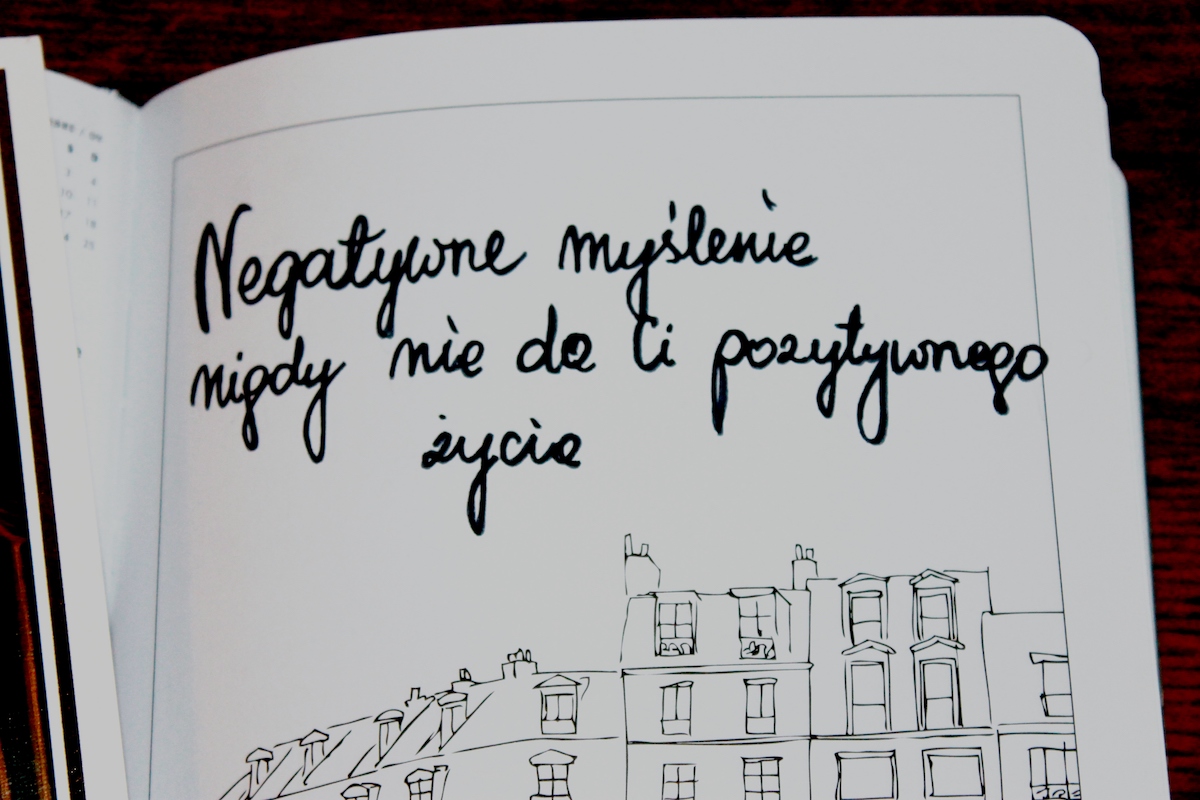 Negatywne myślenie
nigdy nie da Ci pozytywnego
życia